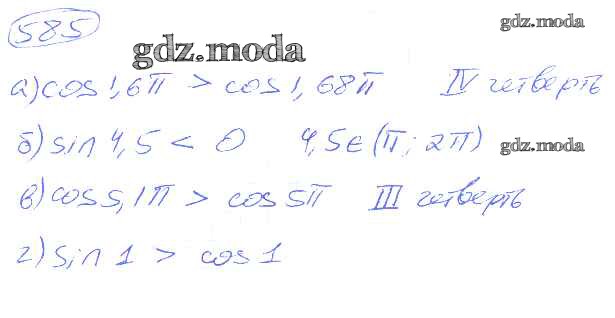 585
gdz.moda
gdz.moda
а) cos 1,6π > cos 1,68π IV четверть
б) sin 4,5 < 0 4,5 ∈ (π; 2π)
gdz.moda
в) cos 5,1π > cos 5π III четверть
г) sin 1 > cos 1